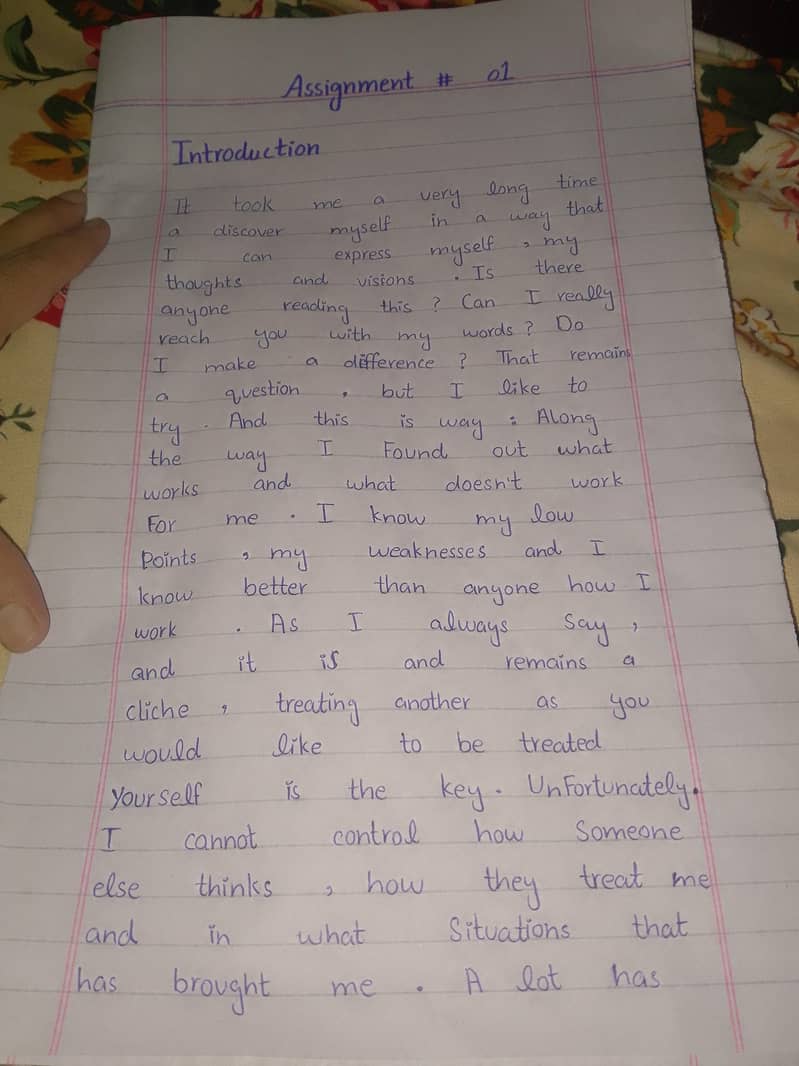 Assignment # 01
Introduction
It took me a very long time
a discover myself in a way that
I can express myself , my
thoughts and visions . Is there
anyone reading this ? Can I really
reach you with my words ? Do
I make a difference ? That remains
a question , but I like to
try . And this is way : Along
the way I Found out what
works and what doesn't work
For me . I know my low
Points , my weaknesses and I
know better than anyone how I
work . As I always say ,
and it is and remains a
cliche , treating another as you
would like to be treated
yourself is the key . UnFortunately .
I cannot control how Someone
else thinks , how they treat me
and in what Situations that
has brought me . A lot has